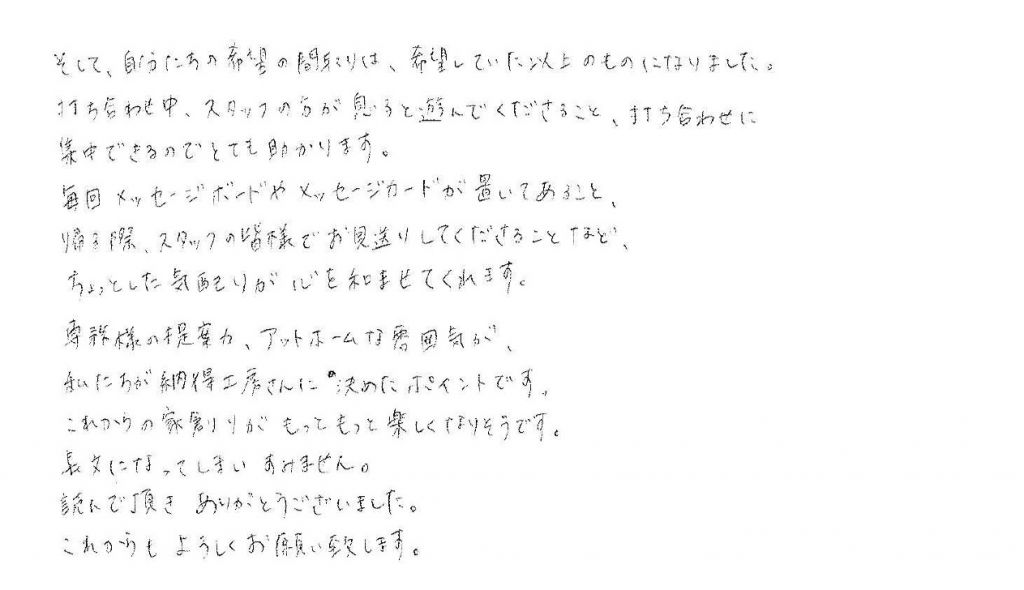 そして、自分たちの希望の間取りは、希望していた以上のものになりました。
打ち合わせ中、スタッフの方が息子と遊んでくださること、打ち合わせに
集中できるのでとても助かります。
毎回メッセージボードやメッセージカードが置いてあること、
帰る際、スタッフの皆様でお見送りしてくださることなど、
ちょっとした気配りが心を和ませてくれます。
専務様の提案力、アットホームな雰囲気が、
私たちが納得工房さんに決めたポイントです。
これからの家創りがもっともっと楽しくなりそうです。
長文になってしまいすみません。
読んで頂きありがとうございました。
これからもよろしくお願い致します。